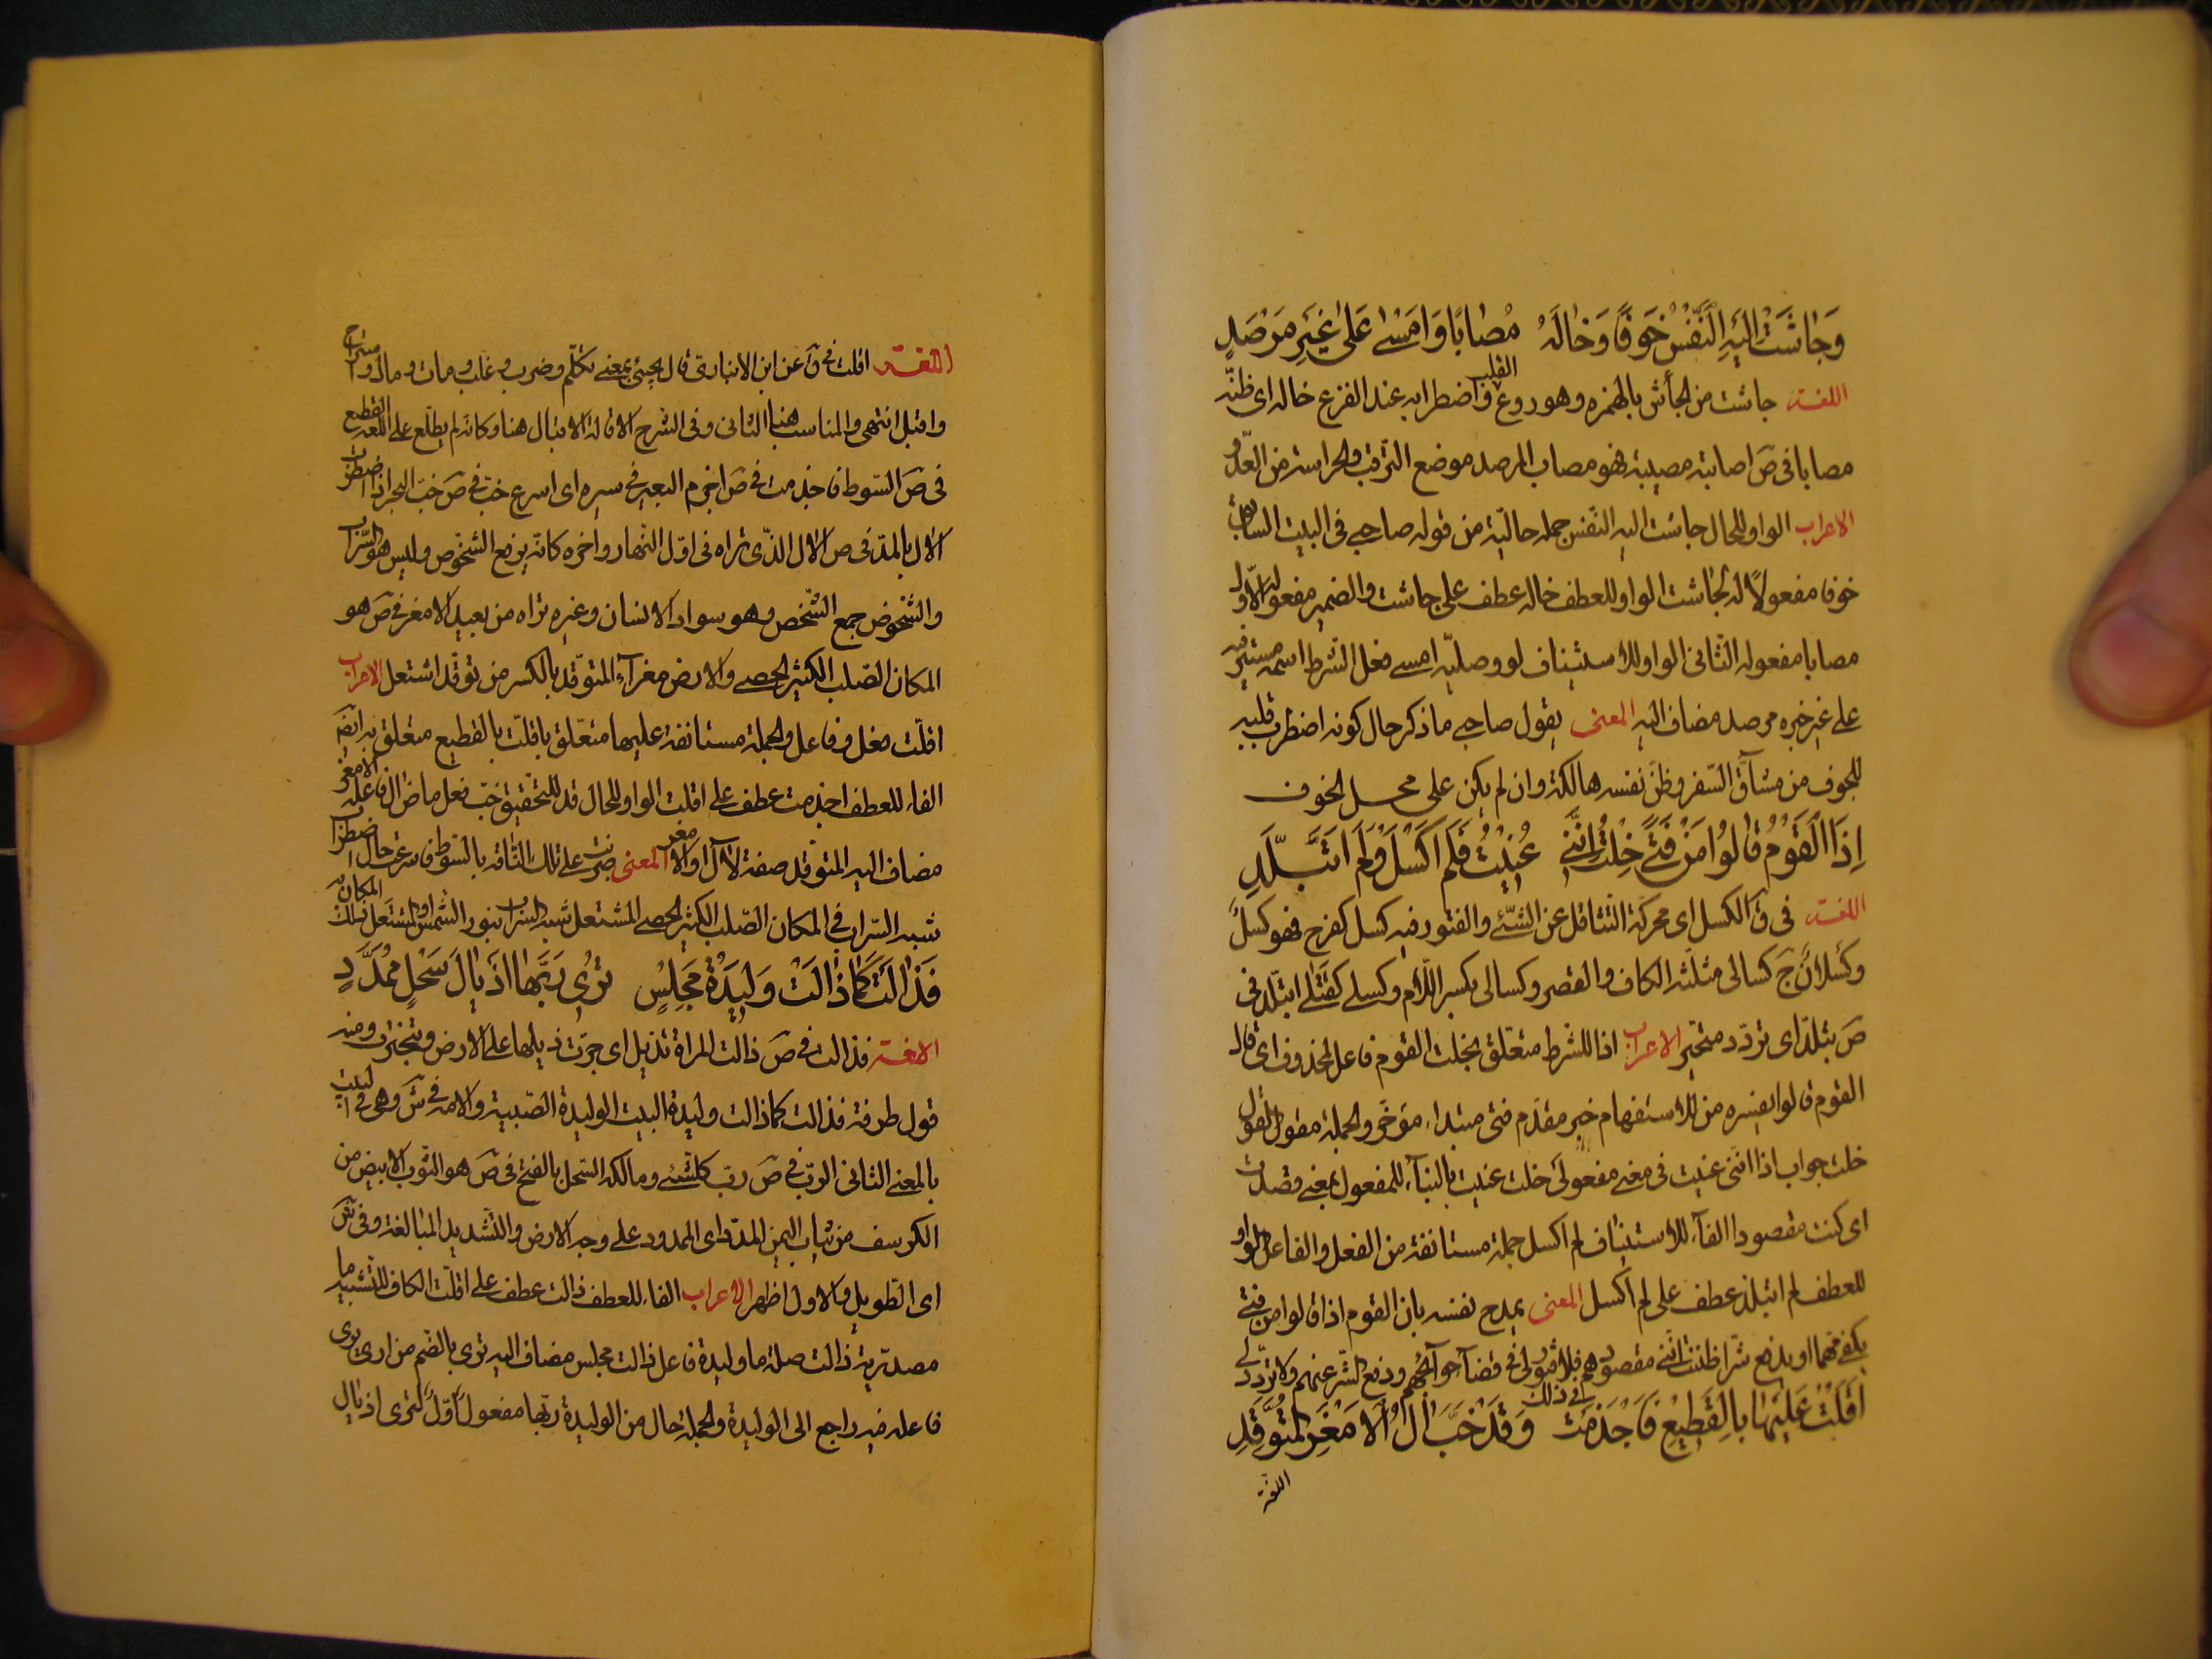 وَجٰاشَتْ اِلَيْهِ النَّفْسُ خَوْفًا وَخٰالَهُ مُصٰابًا وَلَوْ اَمْسٰى عَلىٰ غَيْرِ مَرْصَدٍ
اللغة جاشت من الجأش بالهمزه وهو روع القلب واضطرابه عند الفزع خاله اى ظنّه
مصابا فى صَ اصابته مصيبة فهو مصاب المرصد موضع الترقب والحراسة من العدّو
الاعراب الواو للحال جاشت اليه النّفس جمله حاليّة من قوله صاحبى فى البيت السابق
خوفا مفعولًا له لجاشت الواو للعطف خاله عطف على جاشت والضمير مفعوله الاوّل
مصابا مفعوله الثّانى الواو للاستيناف لو وصليّه امسى فعل الشرط اسمه مستتر فيه
على غير خبره مرصد مضاف اليه المعنى يقول صاحبى ما ذكر حال كونه اضطرب قلبه
للخوف من مشاقّ السّفر وظنّ نفسه هالكة وان لم يكن على محل الخوف
اِذَا الْقَوْمُ قٰالُوا مَنْ فَتًى خِلْتُ اِنَّنِى عُنِيْتُ فَلَمْ اَكْسَلْ وَلَمْ اَتَبَلَّدِ
اللغة فى قَ الكسل اى محركة التثاقل عن الشّئ والفتور فيه كسل كفرح فهو كسل
وكسلان جَ كسالى مثلّثه الكاف والقصر وكسالى بكسر اللّام وكسلى كقتلى اتبلّد فى
صَ تبلّد اى تردّد متحيّرا الاعراب اذا للشرط متعّلق بخلت القوم فاعل لمحذوف اى قال
القوم قالوا يفسره من للاستفهام خبر مقدّم فتى مبتداء مؤخّر والجملة مقول القول
خلت جواب اذا انّنى عنيت فى معنى مفعولَى خلت عنيت بالبنآء للمفعول بمعنى قصدت
اى كنت مقصودا الفآء للاستيناف لم اكسل جملة مستانفة من الفعل والفاعل الواو
للعطف لم اتبلّد عطف على لم اكسل المعنى يمدح نفسه بان القوم اذا قالوا من فتى
يكفى مهمّا او يدفع شرّا ظننت انّنى مقصودهم فلا فتور لى فى قضآء حوآئجهم ودفع الشّر عنهم ولا تردّد لى
فى ذلك
اَقَلْتُ عَلَيْهٰا بِالْقَطِيْعِ فَاَجْذَمَتْ وَقَدْ خَبَّ اٰلُ الْاَمْغَرِ الْمُتَوَقِّدِ
اللغة
اللغة اقلت فى قَ عن ابن الانبارىّ قال يجيئ بمعنى تكلّم وضرب وغلب ومات ومال واستراح
واقبل انتهى والمناسب هنا الثانى وفى الشرح الاقالة الاقبال هنا وكانّه لم يطّلع على اللغة القطيع
فى صَ السّوط فاجذمت فى صَ اجذم البعير فى سيره اى اسرع خبّ فى صَ خبّ البحر اذا اضطرب
الآل بالمدّ فى صَ الآل الذّى تراه فى اوّل النّهار وآخره كانّه يرفع الشّخوص وليس هو السّراب
والشّخوص جمع الشّخص وهو سواد الانسان وغيره تراه من بعيد الامغر فى صَ هو
المكان الصّلب الكثير الحصى والارض مغرآء المتوّقد بالكسر من توقّد اشتعل الاعراب
اقلت فعل وفاعل والجملة مستانفة عليها متعّلق باقلت بالقطيع متعّلق به ايضَ
الفاء للعطف اجذمت عطف على اقلت الواو للحال قد للتحقيق خبّ فعل ماض آل فاعله الامغر
مضاف اليه المتوّقد صفة لآل او الامغر المعنى ضربت على تلك النّاقة بالسّوط فاسرعت حال اضطراب
شبه السّراب فى المكان الصّلب الكثير الحصى المشتعل شبه السراب بنور الشمس او المشتعل ذلك المكان به
فَذٰالَتْ كَمٰا ذٰالَتْ وَلِيْدَةُ مَجْلِسٍ تُرِى رَبَّهٰا اَذْيٰالَ سَحْلٍ مُمَدَّدِ
الاغة فذالت فى صَ ذالت المراة تذيل اى جرّت ذيلها على الارض وتبخترت ومنه
قول طرفة فذالت كما ذالت وليدة البيت الوليدة الصّبيّة والامة فى شَ وهى فى البيت
بالمعنى الثانى الربّ فى صَ ربّ كلّ شئ ومالكه السّحل بالفتح فى صَ هو الثوب الابيض من
الكرسف من ثياب اليمن الممدّد اى الممدود على وجه الارض والتّشديد للمبالغة وفى شَ
اى الطّويل والاول اظهر الاعراب الفاء للعطف ذالت عطف على اقلت الكاف للتشبيه ما
مصدريّة ذالت صلة ما وليدة فاعل ذالت مجلس مضاف اليه ترى بالضّم من ارى يرى
فاعله فيه راجع الى الوليدة والجملة حال من الوليدة ربّها مفعول اوّل لترى اذيال